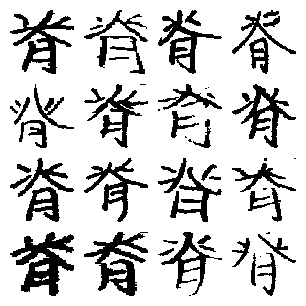 脊脊脊脊
脊脊脊脊
脊脊脊脊
脊脊脊脊